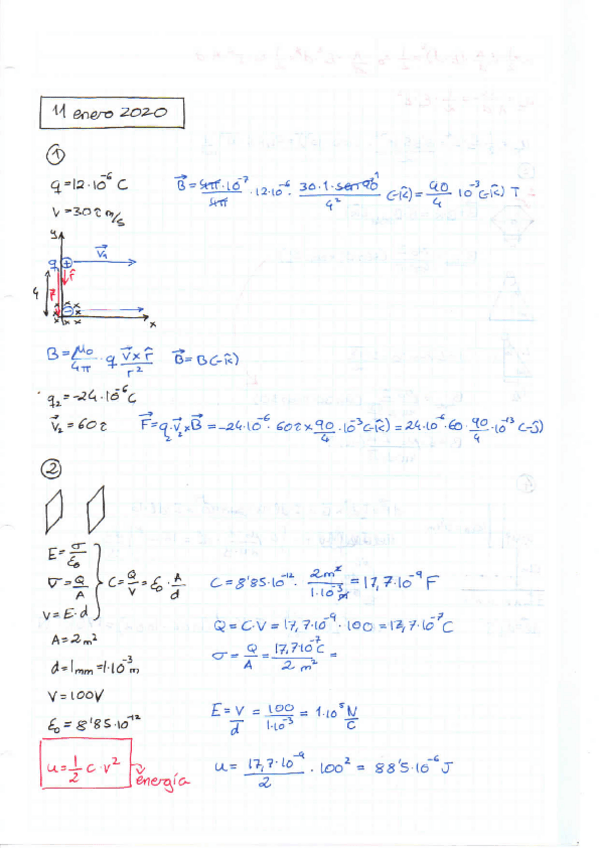 11 enero 2020
①
q = 12·10⁻⁶ C
v = 30 î m/s
B⃗ = 4π·10⁻⁷/4π · 12·10⁻⁶ · 30·1·sen90¹/4² (-k̂) = 90/4 10⁻¹³ (-k̂) T
y
q ⊕ v⃗₁
r̂
4 r⃗
x x x
x ⊖ x
x x x x
B = μ₀/4π · q v⃗ x r̂/r² B⃗ = B(-k̂)
q₂ = -24·10⁻⁶ C
v⃗₂ = 60 î F⃗ = q₂·v⃗₂ x B⃗ = -24·10⁻⁶·60 î x 90/4·10⁻¹³ (-k̂) = 24·10⁻⁶·60·90/4·10⁻¹³ (-ĵ)
②
E = σ/ε₀
σ = Q/A C = Q/V = ε₀·A/d C = 8'85·10⁻¹²· 2m²/1·10⁻³m = 17,7·10⁻⁹ F
V = E·d
A = 2m² Q = C·V = 17,7·10⁻⁹·100 = 17,7·10⁻⁷ C
d = 1mm = 1·10⁻³ m σ = Q/A = 17,7·10⁻⁷ C/2 m² =
V = 100V
ε₀ = 8'85·10⁻¹² E = V/d = 100/1·10⁻³ = 1·10⁵ N/C
u = 1/2 C·V² energía u = 17,7·10⁻⁹/2 · 100² = 88'5·10⁻⁶ J